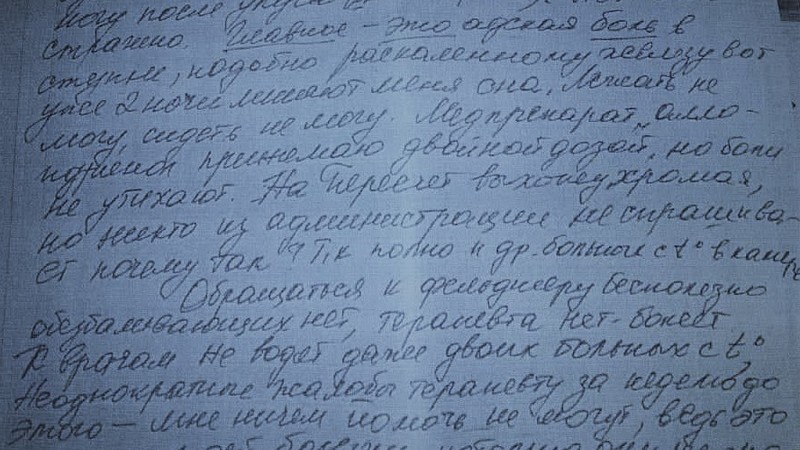 ногу после укуса
страшно. Главное - это адская боль в
ступне, подобно раскаленному железу вот
уже 2 ночи лишают меня сна, лежать не
могу, сидеть не могу. Медпрепарат „алло-
принимаю двойной дозой, но боли
не утихают. На Пересчет выхожу, хромая,
но никто из администрации не спрашива-
ет почему так Т.к полно и др. больных с t° в камере
Обращаться к фельдшеру бесполезно
обезбаливающих нет, терапевта нет - болеет
К врачам не водят даже двоих больных с t°
Неоднократные жалобы терапевту за неделю до
этого — мне ничем помочь не могут, ведь это